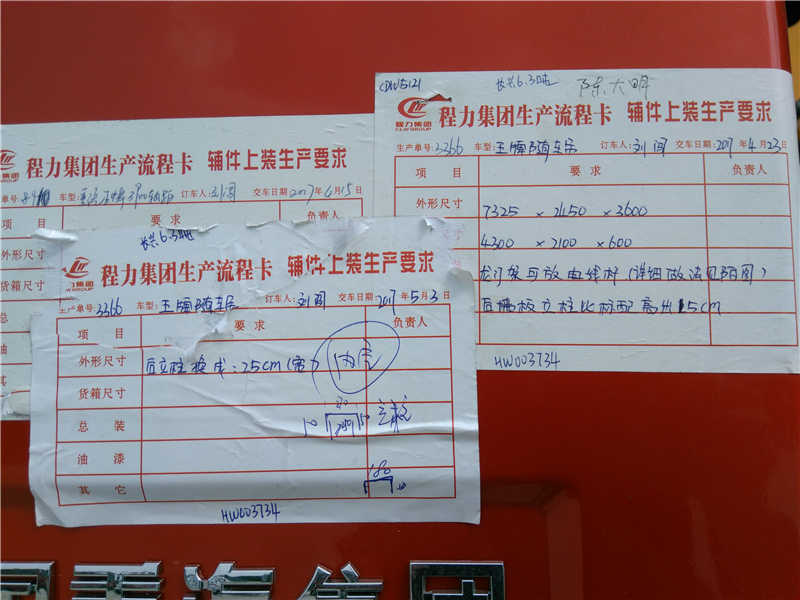 CDW5121
长兴6.3吨
陈大明
程力集团
CLW GROUP
程力集团生产流程卡 辅件上装生产要求
生产单号:3366 车型:王牌随车吊 订车人:刘闯 交车日期:2017年4月23日
项 目 要 求 负责人
外形尺寸 7325 × 2450 × 3600
4300 × 2100 × 600
龙门架与放电线杆(详细做法见附图)
后桶板立柱比标配高出15cm
HW003734
程力集团生产流程卡 辅件上装生产要求
单号: 车型: 订车人:刘闯 交车日期:2017年6月15日
项 目 要 求 负责人
外形尺寸
货箱尺寸
总
油
其
长兴6.3吨
程力集团生产流程卡 辅件上装生产要求
生产单号:3366 车型:王牌随车吊 订车人:刘闯 交车日期:2017年5月3日
项 目 要 求 负责人
外形尺寸 后立柱换成:25cm(宽)
货箱尺寸
总 装
油 漆
180
其 它
HW003734